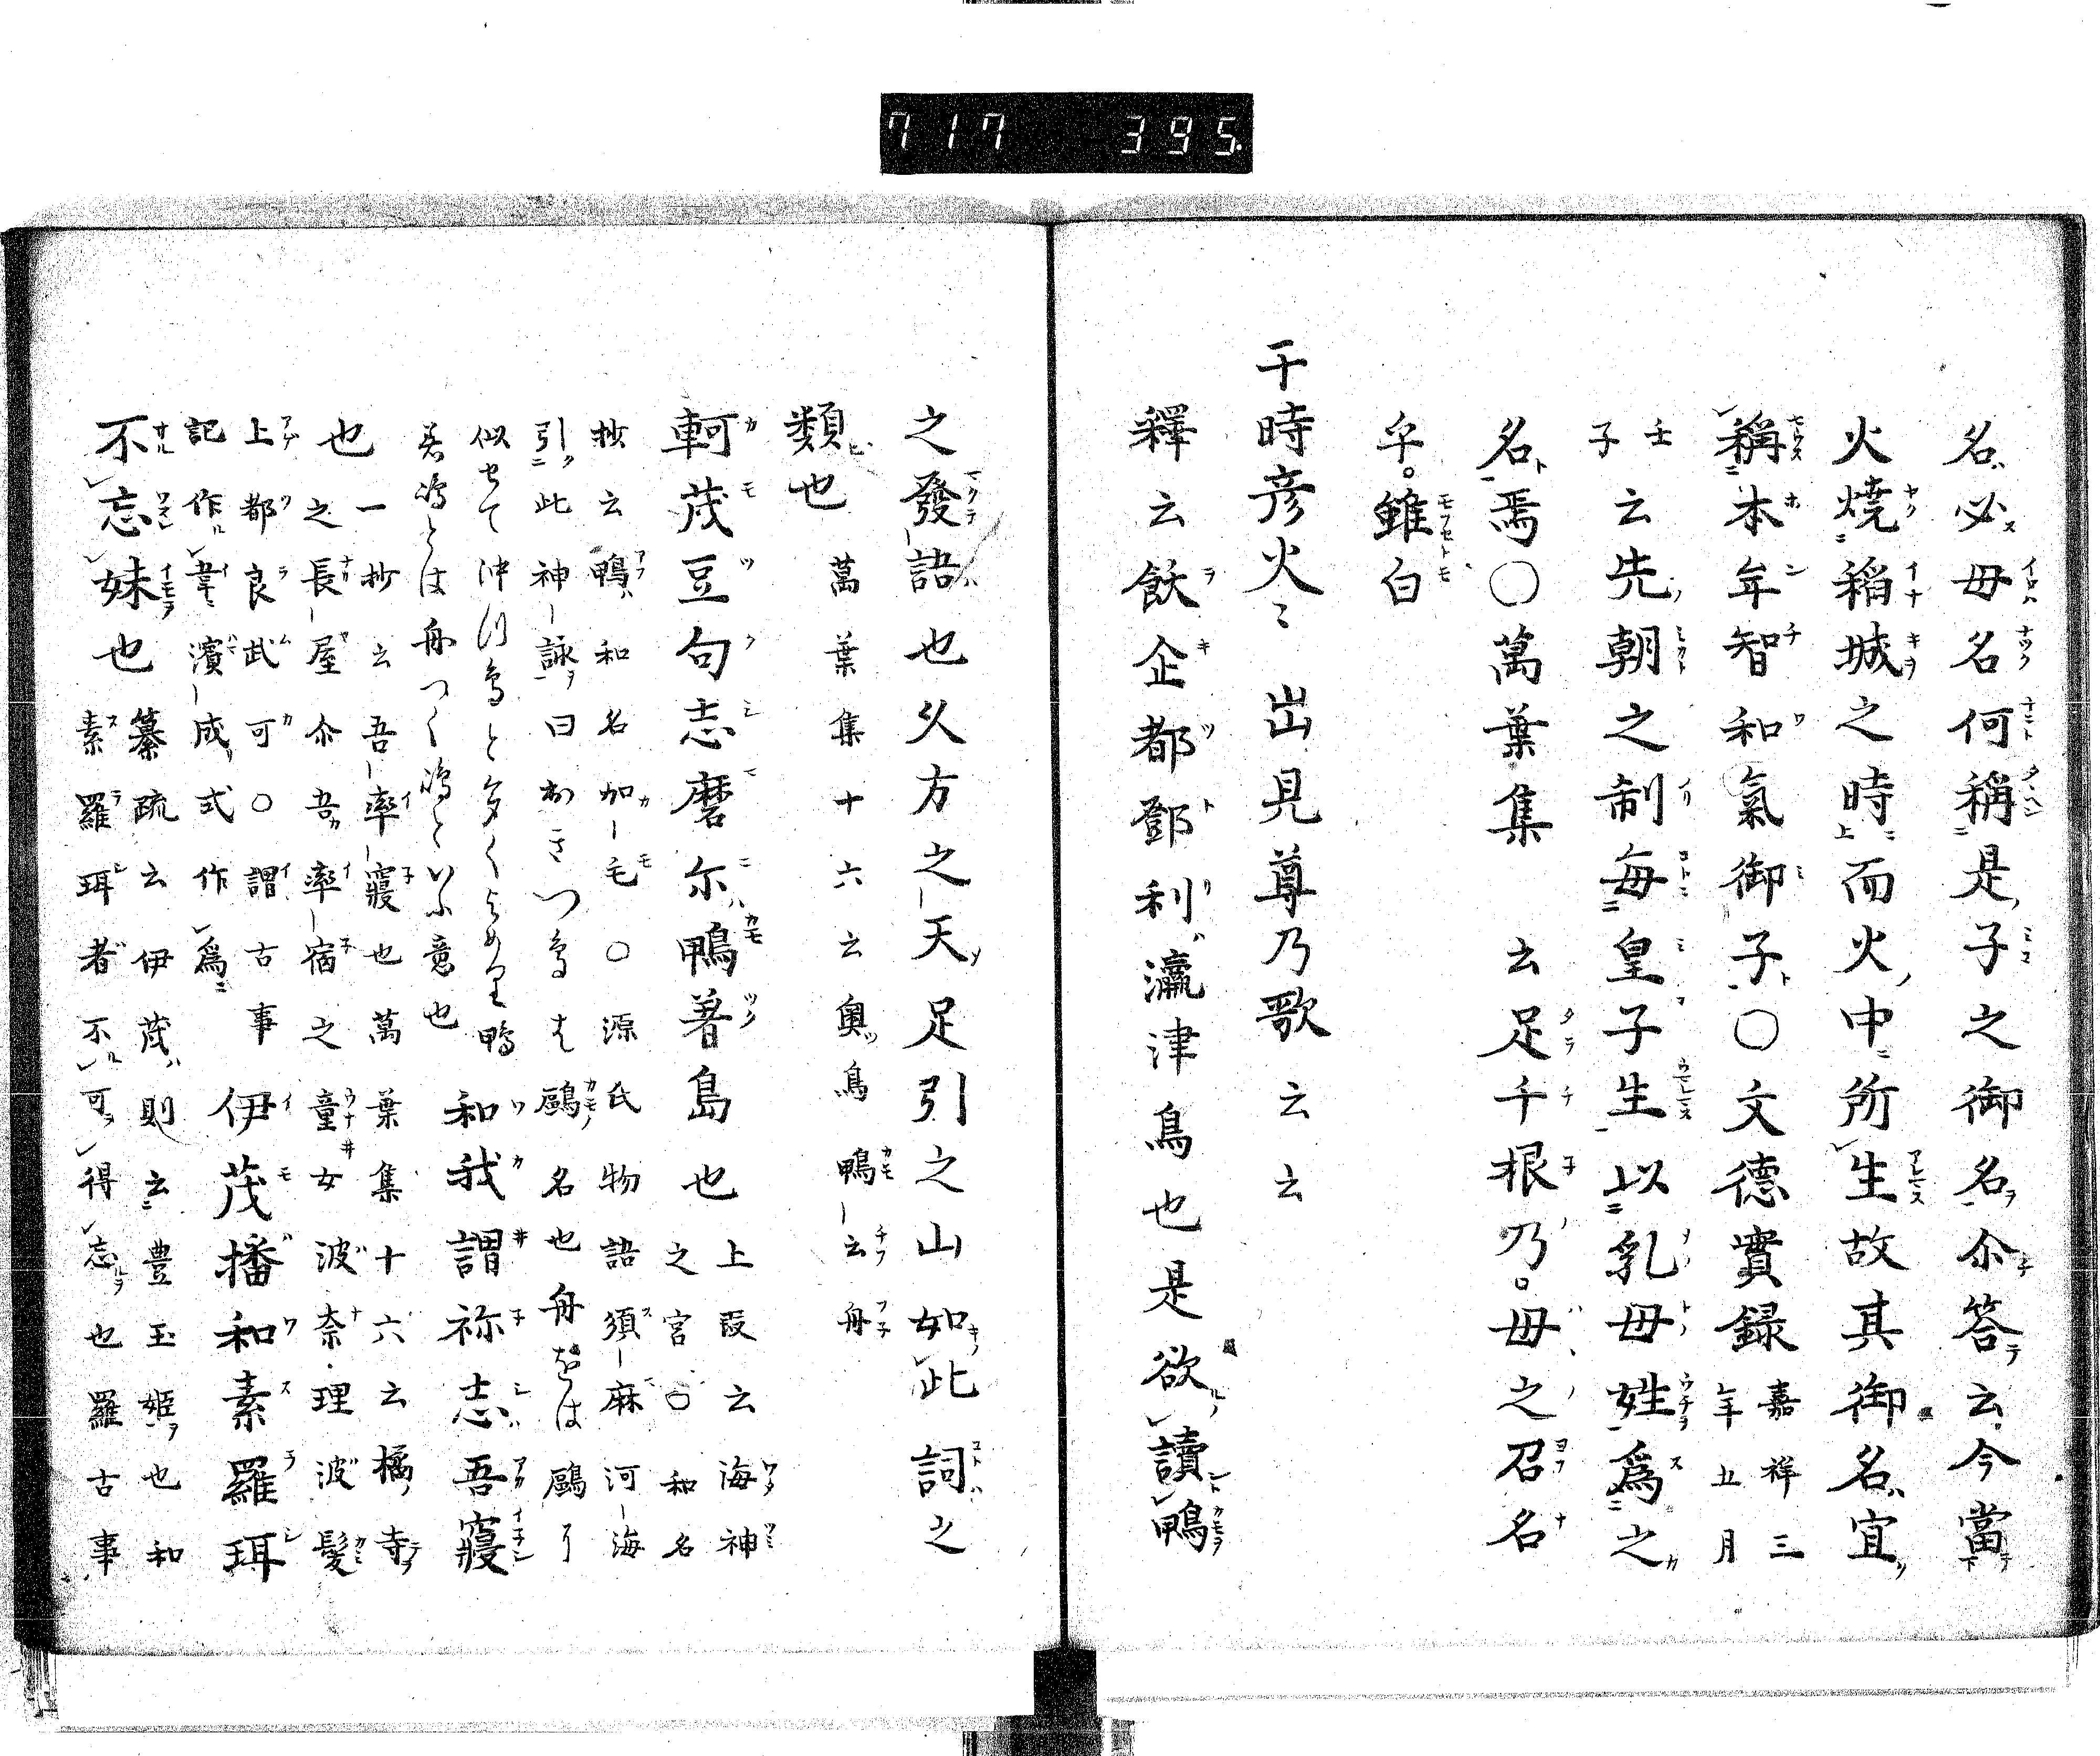 717 395.
名必母名何稱是子之御名尒答云今當
火燒稲城之時而火中所生故其御名宜
稱本年智和氣御子○文德實録嘉祥三年五月
壬子云先朝之制毎皇子生以乳母姓爲之
名焉○萬葉集 云足千根乃母之召名
乎雖白
于時彦火〻出見尊乃歌云云
釋云飫企都鄧利瀛津鳥也是欲讀鴨
之發語也久方之天足引之山如此詞之
類也 萬葉集十六云奥鳥鴨云舟
軻茂豆句志磨尓鴨著島也 上段云海神
之宮○和名
抄云鴨和名加毛○源氏物語須麻河海
引此神詠曰おきつ鳥は鷗名也舟をは鷗に
似せて沖つ鳥と多くよめり鴨
著嶋とは舟つく嶋といふ意也
和我謂祢志吾寢
也 一抄云吾率寢也萬葉集十六云橘寺
之長屋尒吾率宿之童女波奈理波髪
上都良武可○謂古事
記作韋濱成式作爲
伊茂播和素羅珥
不忘妹也 纂疏云伊茂則云豊玉姫也和
素羅珥者不可得忘也羅古事